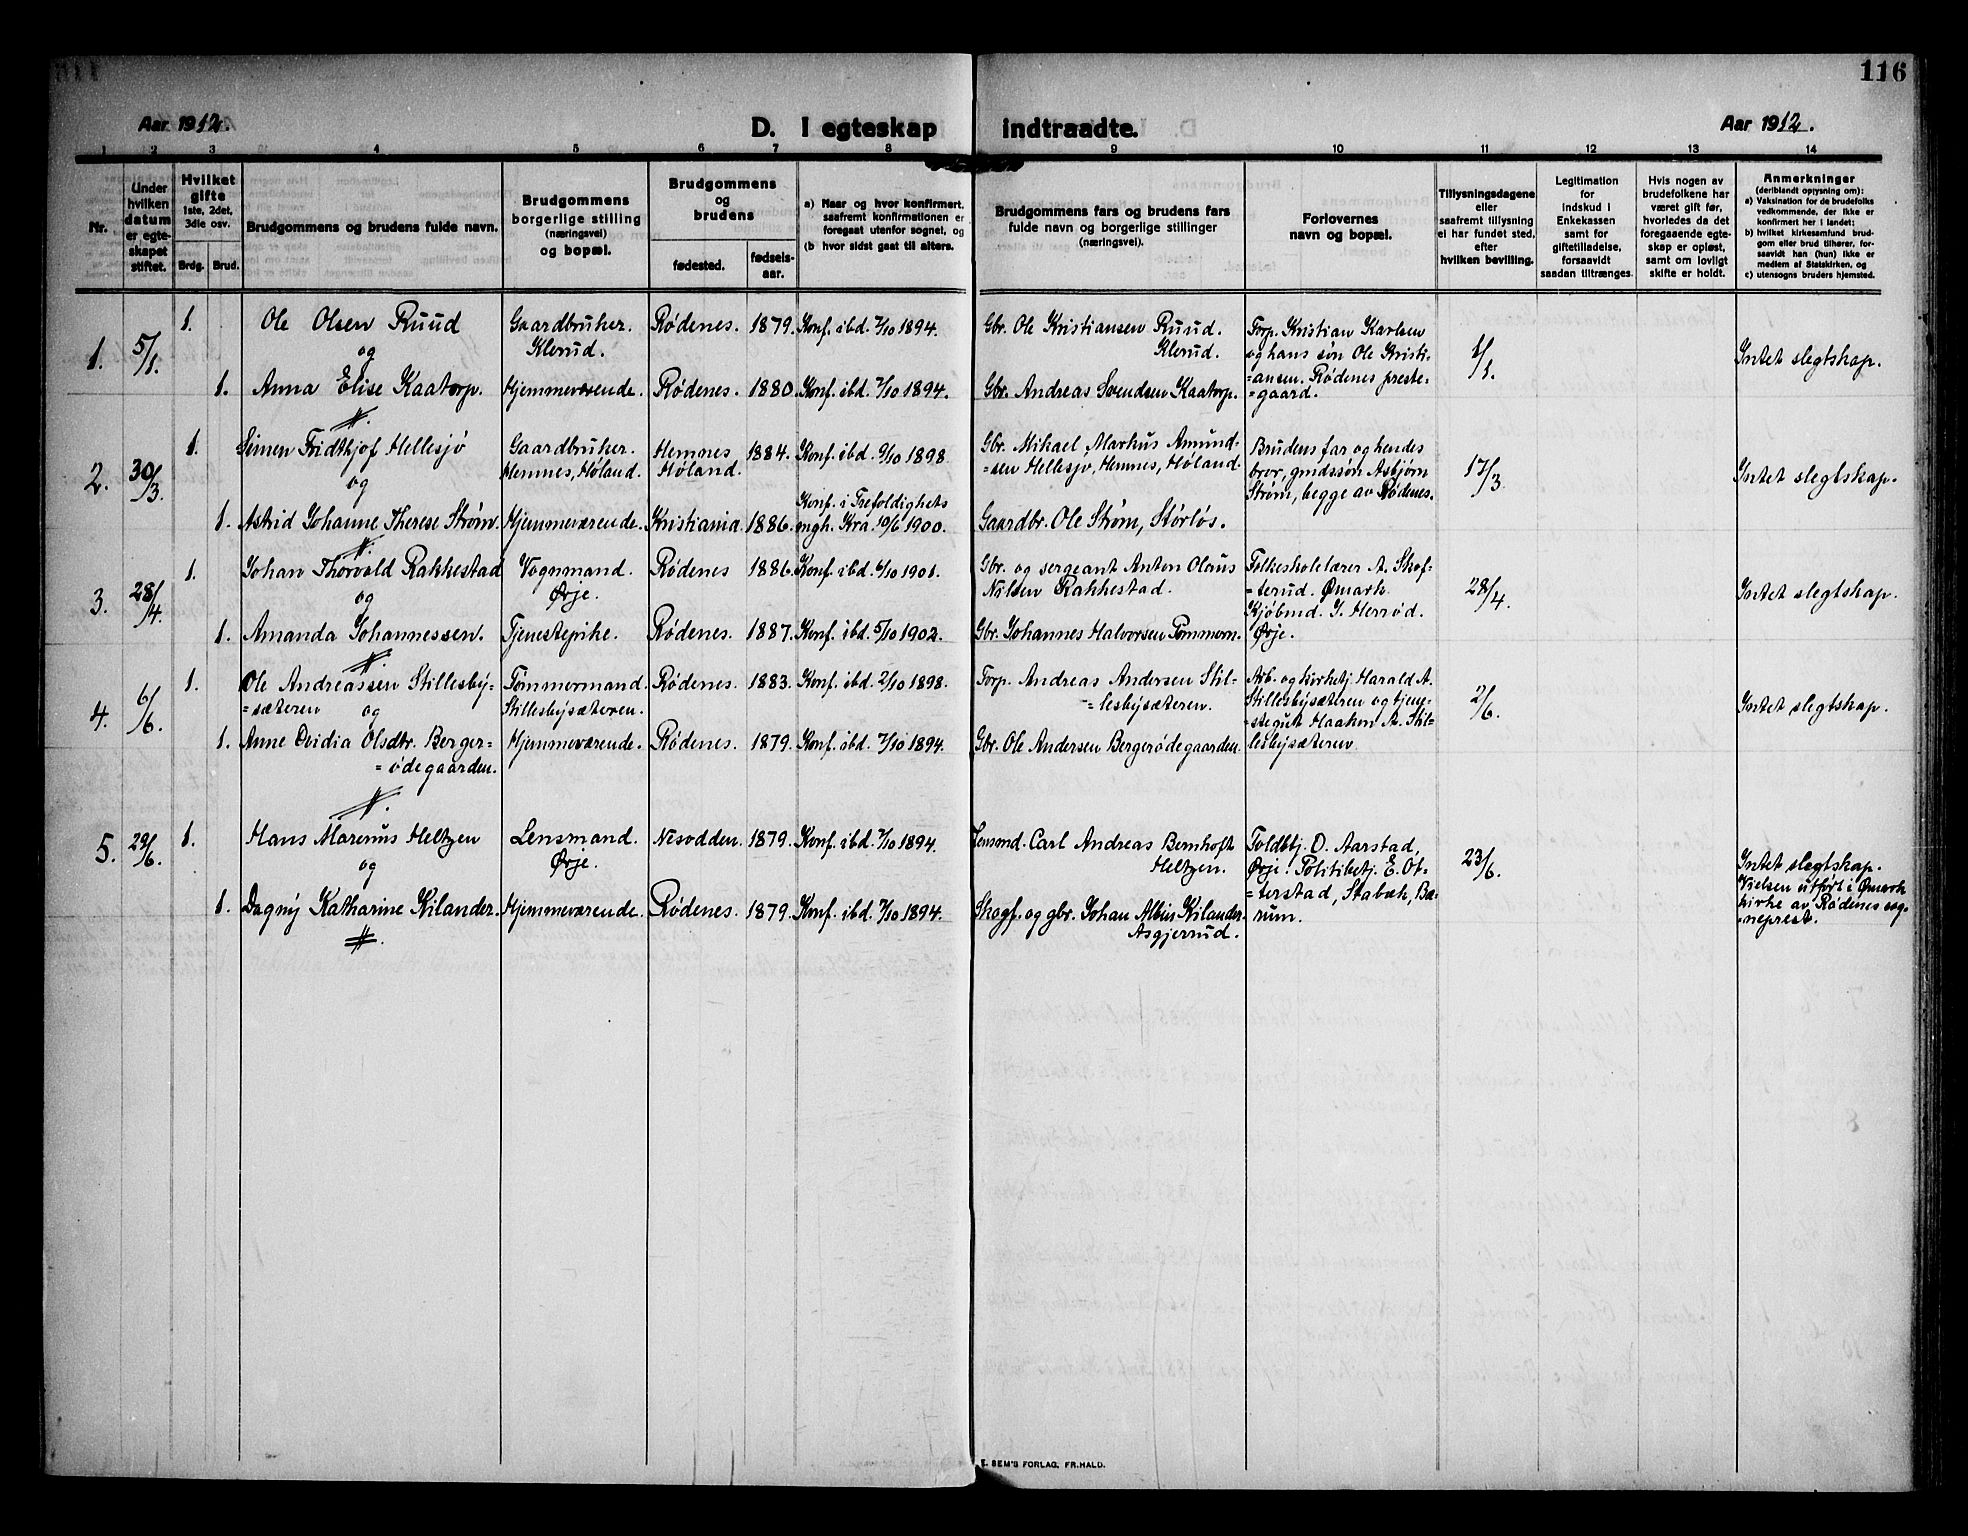 116
Aar 1912.
D. I egteskap indtraadte.
Aar 1912.
1 2 3 4 5 6 7 8 9 10 11 12 13 14
Nr.
Under
hvilken
datum
er egte-
skapet
stiftet.
Hvilket
gifte
1ste, 2det,
3die osv.
Brdg. Brud.
Brudgommens og brudens fulde navn.
Brudgommens
borgerlige stilling
(næringsvei)
og bopæl.
Brudgommens
og
brudens
fødested.
fødsels-
aar.
a) Naar og hvor konfirmert,
saafremt konfirmationen er
foregaat utenfor sognet, og
b hvor sidst gaat til alters.
Brudgommens fars og brudens fars
fulde navn og borgerlige stillinger
(næringsvei).
Forlovernes
navn og bopæl.
Tillysningsdagene
eller
saafremt tillysning
ei har fundet sted,
efter
hvilken bevilling.
Legitimation
for
indskud i
Enkekassen
samt for
giftetilladelse,
forsaavidt
saadan tiltrænges.
Hvis nogen av
brudefolkene har
været gift før,
hvorledes da det
foregaaende egte-
skap er opløst,
samt om lovligt
skifte er holdt.
Anmerkninger
(deriblandt oplysning om):
a) Vaksination for de brudefolks
vedkommende, der ikke er
konfirmert her i landet;
b) hvilket kirkesamfund brud-
gom eller brud tilhører, for-
saavidt han (hun) ikke er
medlem af Statskirken, og
c) utensogns bruders hjemsted.
1. 5/1. 1. Ole Olsen Ruud
og
1. Anna Elise Kaatorp.
Gaardbruker.
Klerud.
Hjemmeværende.
Rødenes. 1879. Konf. ibd. 7/10 1894.
Rødenes. 1880. Konf. ibd. 7/10 1894.
Gbr. Ole Kristiansen Ruud.
Klerud.
Gbr. Andreas Svendsen Kaatorp.
Forp. Kristian Karlsen
og hans søn Ole Kristi-
=ansen. Rødenes preste-
=gaard.
1/1.
Intet slegtskap.
2. 30/3. 1. Simen Fridthjof Hellesjø
og
1. Astrid Johanne Therese Strøm.
Gaardbruker.
Hemnes, Høland.
Hjemmeværende.
Hemnes
Høland. 1884. Konf. ibd. 9/10 1898.
Kristiania. 1886. Konf. i Trefoldighets
mgh. Kra. 10/6 1900.
Gbr. Mikael Markus Amund-
=sen Hellesjø, Hemnes, Høland.
Gaardbr. Ole Strøm, Størløs.
Brudens far og hendes
bror, grndssøn Asbjørn
Strøm, begge av Rødenes.
17/3.
Intet slegtskap.
3. 28/4. 1. Johan Thorvald Rakkestad
og
1. Amanda Johannessen.
Vognmand.
Ørje.
Tjenestepike.
Rødenes 1886. Konf. ibd. 6/10 1901.
Rødenes. 1887. Konf. ibd. 5/10 1902.
Gbr. og sergeant Anton Olaus
Nilsen Rakkestad.
Gbr. Johannes Halvorsen Tømmern.
Folkeskolelærer A. Skof-
=terud. Ømark.
Kjøbmd. J. Herrød.
Ørje.
28/4.
Intet slegtskap.
4. 6/6. 1. Ole Andreassen Stillesby-
=sæteren og
1. Anne Ovidia Olsdtr. Berger-
=ødegaarden.
Tømmermand.
Stillesbysæteren.
Hjemmeværende.
Rødenes. 1883. Konf. ibd. 2/10 1898.
Rødenes. 1879. Konf. ibd. 7/10 1894.
Forp. Andreas Andersen Stil-
=lesbysæteren.
Gbr. Ole Andersen Bergerødegaarden.
Arb. og kirketj. Harald A.
Stillesbysæteren og tjene-
=stegut Haakon A. Stil-
lesbysæteren.
2/6.
Intet slegtskap.
5. 29/6. 1. Hans Marenus Heltzen
og
1. Dagny Katharine Kilander.
Lensmand.
Ørje.
Hjemmeværende.
Nesodden. 1879. Konf. ibd. 7/10 1894.
Rødenes. 1879. Konf. ibd. 7/10 1894.
Lensmd. Carl Andreas Bernhoft
Heltzen.
Skogf. og gbr. Johan Albin Kilander
Asgjerrud.
Toldbtj. O. Aarstad,
Ørje. Politibetj. E. Ot-
=terstad, Stabæk, Bæ-
rum.
23/6.
Intet slegtskap.
Vielsen utført i Ømark
kirke av Rødenes sog-
=neprest.
E. SEM'S FORLAG, FR.HALD.